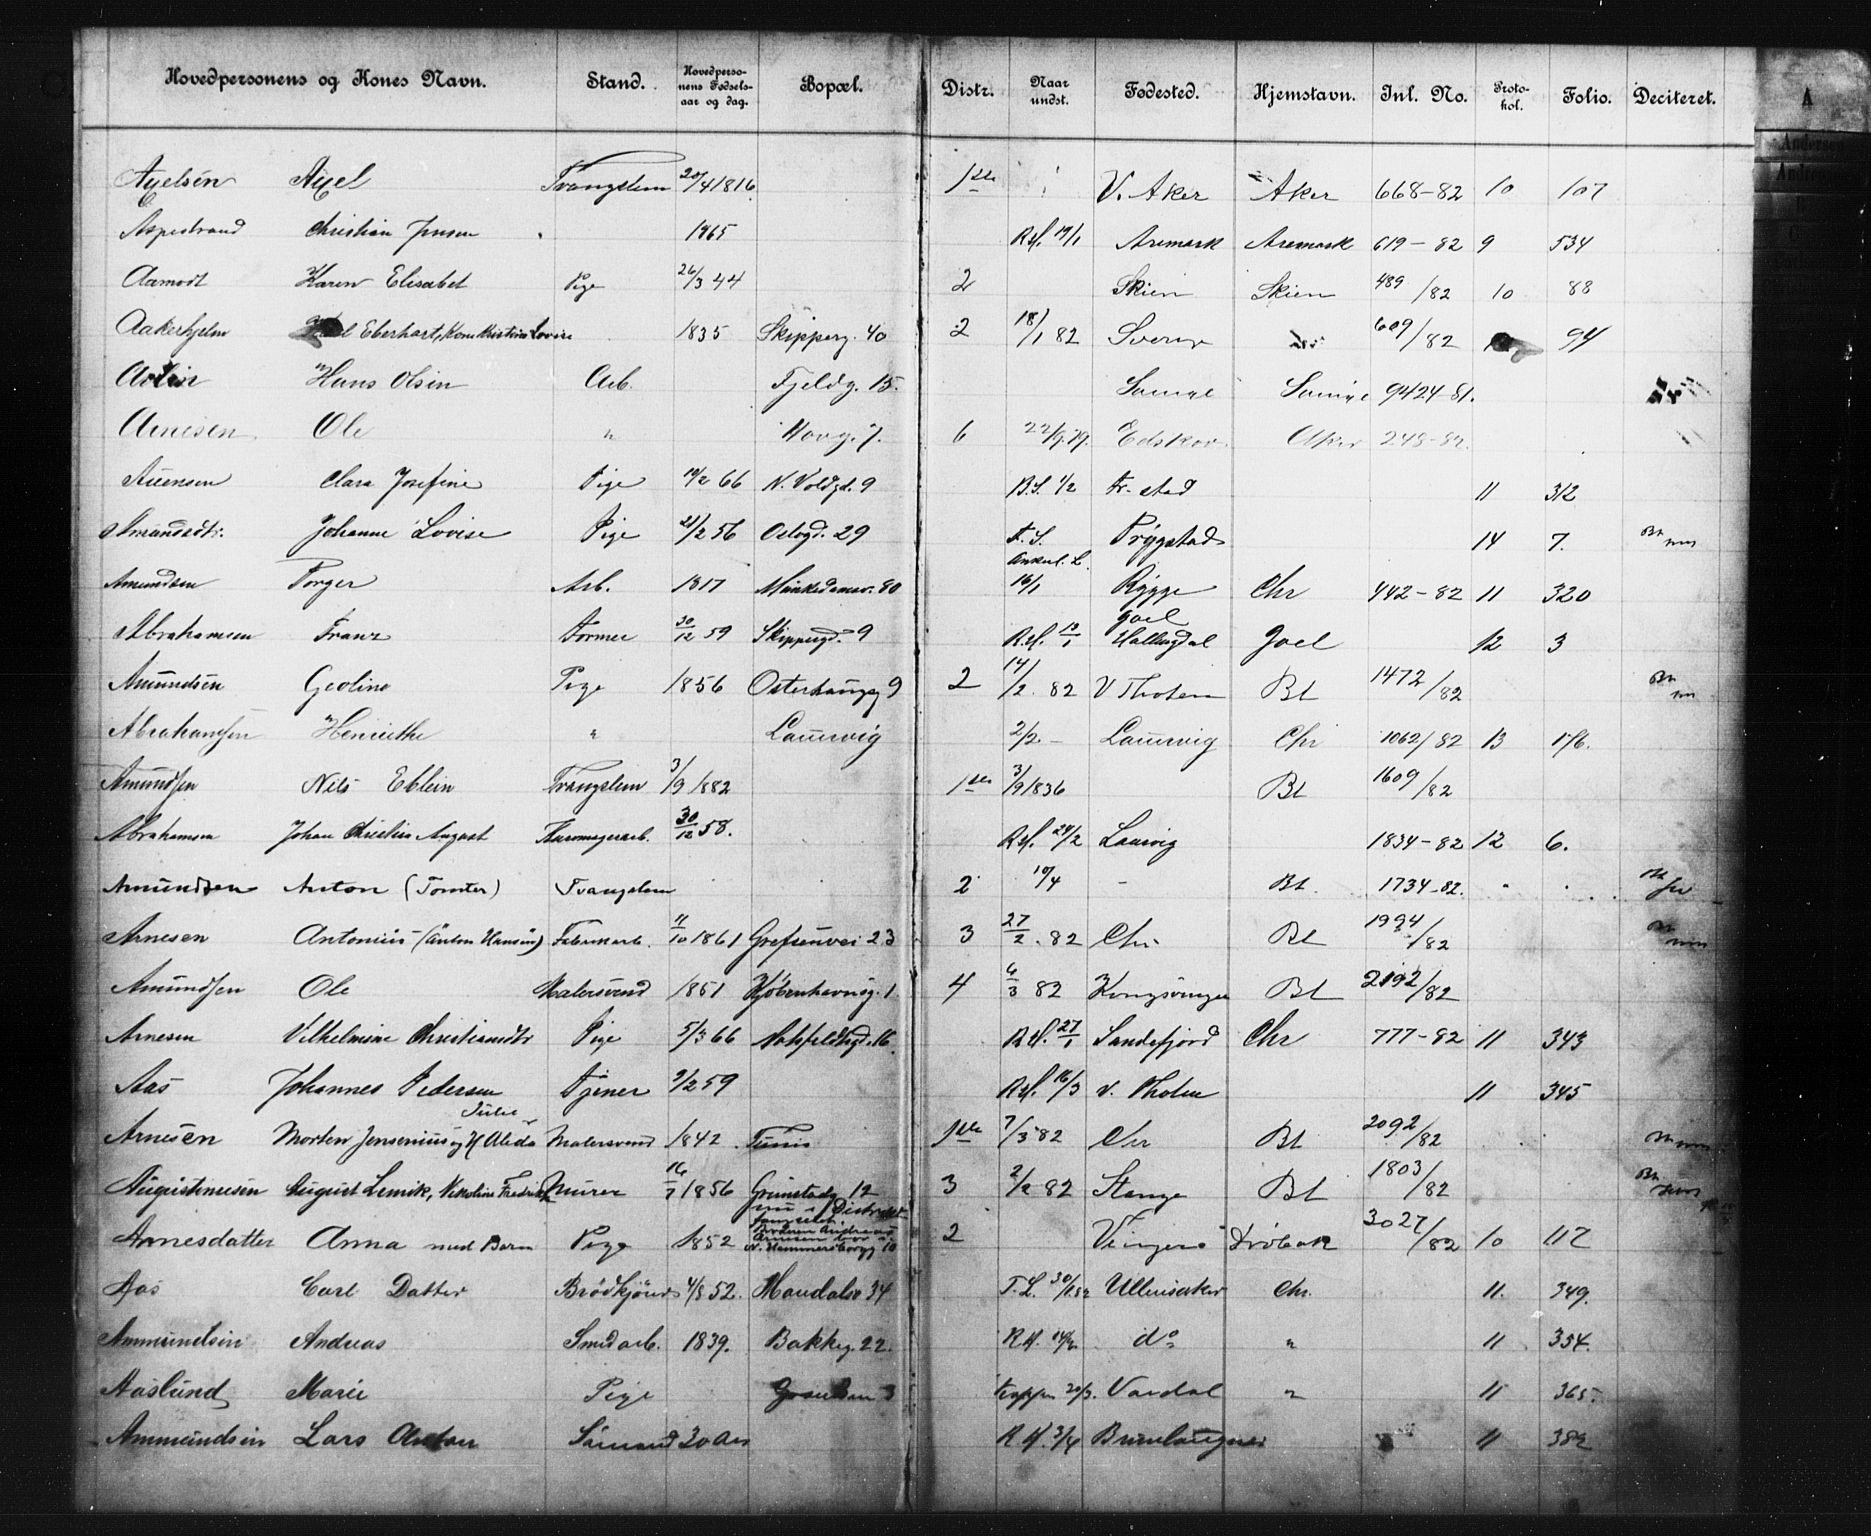 Hovedpersonens og Kones Navn. Stand. Hovedpersonens Fødselsaar og dag. Bopæl. Distr. Naar undst. Fødested. Hjemstavn. Inl. No. Protokol. Folio. Deciteret. A
Andersen
Axelsen Axel Trangslem 20/4 1816 1ste V. Aker Aker 668-82 10 107
Aspestrand Christian Jensen 1865 R.H. 19/1 Aremark Aremark 619-82 9 534
Aamodt Karen Elisabet Pige 26/3 44 2 Skien Skien 489/82 10 88
Aakerhjelm Eberhart, Kone Kristine Lovise 1835 Skipperg. 40 2 18/1 82 Sverige 609/82 94
Hans Olsen Arb. Fjeldg. 15. 9424-81.
Arnesen Ole " 6 22/9.79. Edskov. Aker 248-82
Clara Josefine Pige 19/2 66 N. Voldgd. 9 B.S. 1/2 Fr. stad 11 312
Amundsdtr. Johanne Lovise Pige 21/2 56 Oslogd. 29 F. S. Trygstad 14 7.
Amundsen Torger Arb. 1817 Munkedamsv. 80 Ankerl. L. 16/1 Rygge Chr 442-82 11 320
Abrahamsen Franz Former 30/12 59 Skippergd. 9 R.H. Goel Hallingdal Goel 12 3
Amundsen Geoline Pige 1856 Osterhausg 9 2 14/2. 82 V Thoten Bt 1472/82
Abrahamsen Henriethe " Laurvig 2/2 - Laurvig Chr 1062/82 13 176.
Amundsen Nils Trangslem 3/9 1882 1ste 3/9 1836 Bt 1609/82
Abrahamsen Johan Christian August 30/12 58. R.H. 24/2 Laurvig 1834-82 12 6.
Amundsen Anton (Tomter) Tvangslem 2 10/4 - Bt. 1734-82.
Arnesen Antonius (Anton Hansen) Fabrikarb. 11/10 1861 Grefsenvei 23 3 27/2. 82 Chr. Bt 1994/82
Amundsen Ole Malersvend 1851 Kjøbenhavnsg. 1. 4 6/3 82 Kongsvinger Bt 2192/82
Arnesen Vilhelmine Christiansdtr Pige 5/3 66 R.H. 27/1 Sandefjord Chr 777-82 11 343
Aas Johannes Pedersen Tjener 9/2 59 R.H. 16/3 V. Thoten 11 345
Julie
Arnesen Morten Jensenius og H Alida Malersvend 1842. Tunis 1ste 7/3 82 Chr Bt 2092/82
Augustinusen August Lemik, Nikoline Fredrikke Murer 16/7 1856 Grimstadg 12 3 2/2 82 Stange Bt 1803/82
nu i Distrikts fængslet.
Arnesdatter Anna med Barn Pige 1852 Broderen Andreas Arnesen bor i N. Hammersborgg 10 2 Vinger Drøbak 3027/82 10 117
Aas Carl Datter Brødkjører 4/8 52. Mandalsv 34 T.L. 30/1.82 Ullensaker Chr. 11. 349.
Ammundsen Andreas Smedarb. 1839. Bakkeg. 22. R.H. do " 11 354.
Aaslund Marie Pige 20/3. Vardal " 11 365.
Ammundsen Lars Anton Sømand 30 Aar R.H. 3/4 Brunlaugnes 11 382